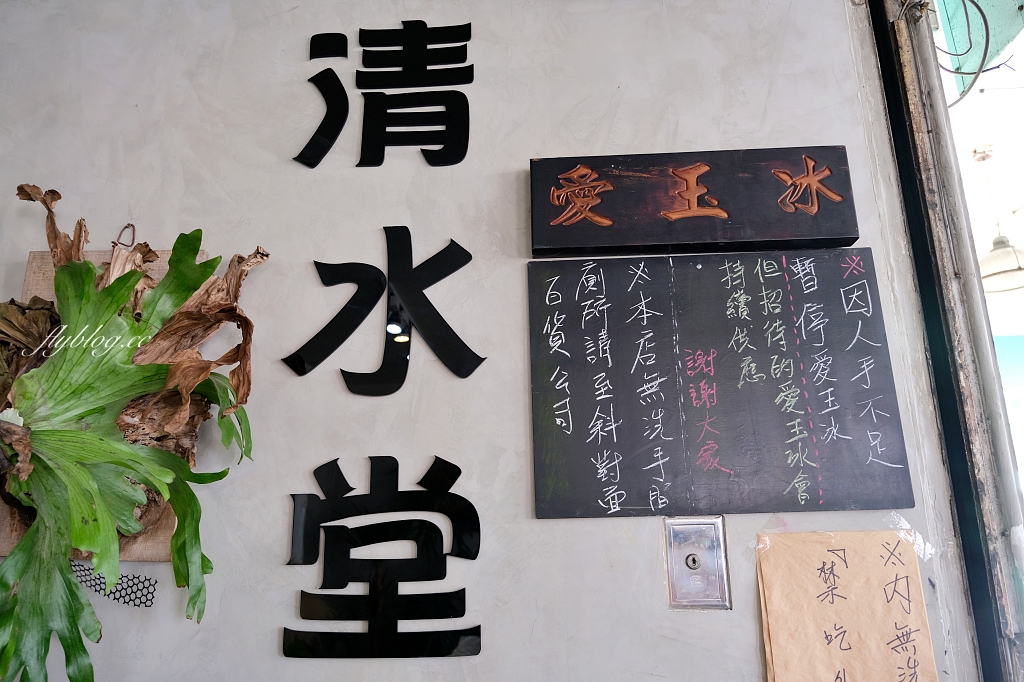 清水堂
愛玉冰
※因人手不足
暫停愛玉冰
但招待的愛玉冰會
持續供應
謝謝大家
※本店無洗手間
廁所請至斜對面
百貨公司
※內無洗
禁吃外
flyblog.cc